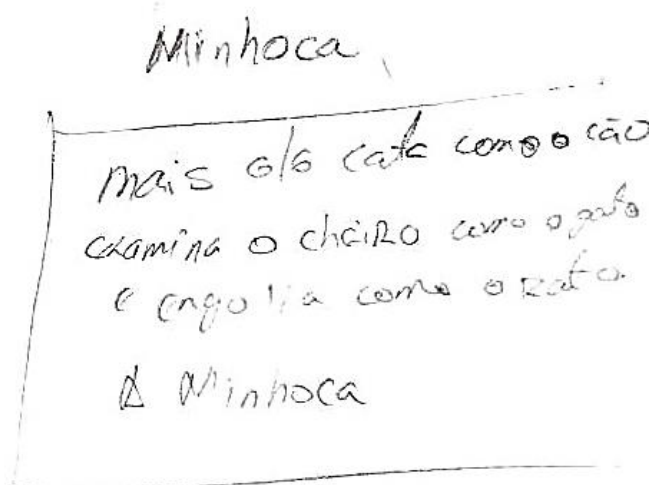 Minhoca
mais ele cata como o cão
examina o cheiro como o gato
e engolia como o rato.
A Minhoca